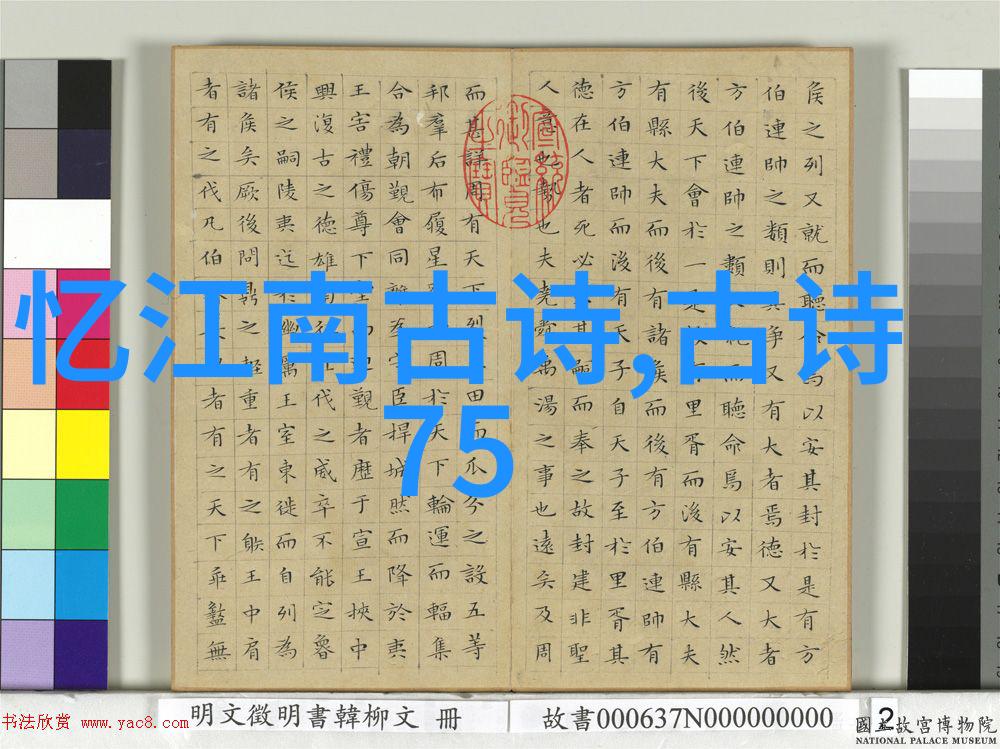 侯之列又就而聽命焉以安其封於是有方
伯連帥之類則其爭又有大者焉德又大者
方伯連帥之類又就而聽命焉以安其人然
後天下會於一是故有里胥而後有縣大夫
有縣大夫而後有諸侯而後有方伯連帥有
方伯連帥而後有天子自天子至於里胥其
德在人者死必其嗣而奉之故封建非聖
人意也勢也夫堯舜禹湯之事也遠矣及周
而甚詳周有天下裂田而瓜分之設五等
邦羣后布履星周於天下輪運而輻集
合為朝覲會同離為守臣捍城然而降於夷
王害禮傷尊下堂而迎覲者歷于宣王挾中
興復古之德雄南征北伐之威卒不能定魯
侯之嗣陵夷迄於幽厲王室東徙而自列為
諸侯矣厥後問鼎之輕重者有之射王中肩
者有之伐凡伯者有之天下乖盭無
忆江南古诗,古诗
75
明文徵明書韓柳文 冊
故書000637N000000000
2
書法欣赏 www.yac8.com
國立故宮博物院
NATIONAL PALACE MUSEUM